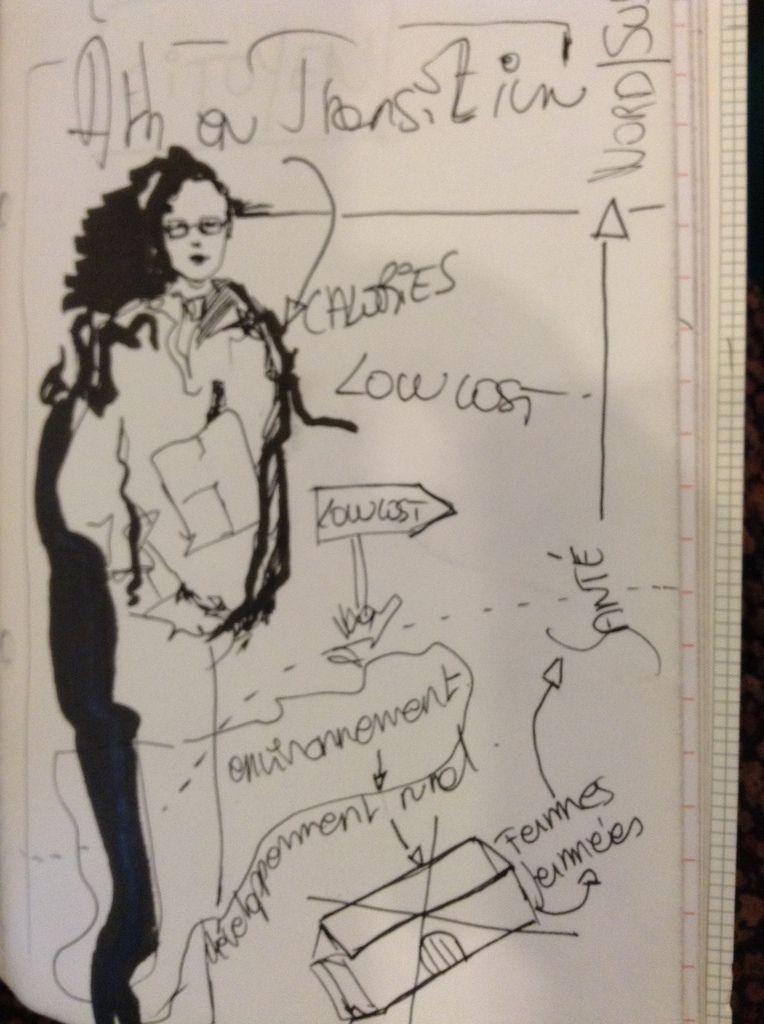 Ath en Transition
NORD/SU
CALORIES
LOW COST
LOW COST
SANTÉ
environnement
développement rural
Fermes
fermées